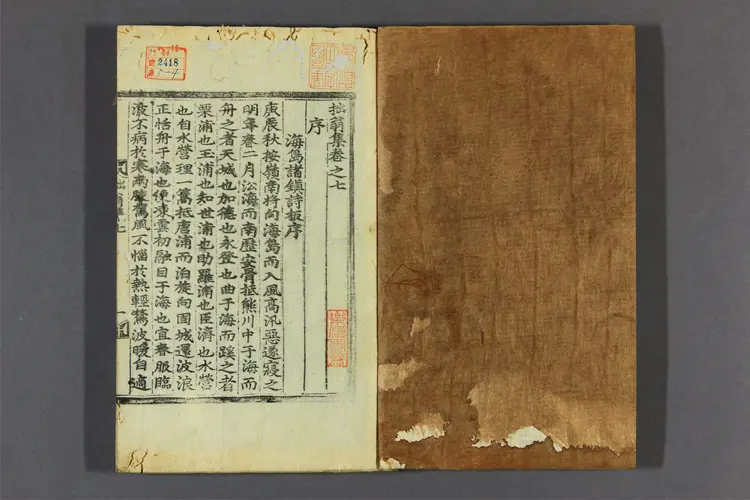 拙翁集卷之七
序
海島諸鎭詩板序
庚辰秋按嶺南將向海島而入風高汛惡遂寢之
明年春二月㳂海而南歷安骨抵熊川中于海而
舟之者天城也加德也永登也曲于海而蹊之者
栗浦也玉浦也知世浦也助羅浦也臣濟也水營
也自水營理一篙抵唐浦而泊旋向固城還波浪
正恬舟于海也便凍雲初融目于海也宜春服臨
浪不病於寒雨驅風不惱於熱輕篙波暖自適
拙翁集七
一
2418
5-4